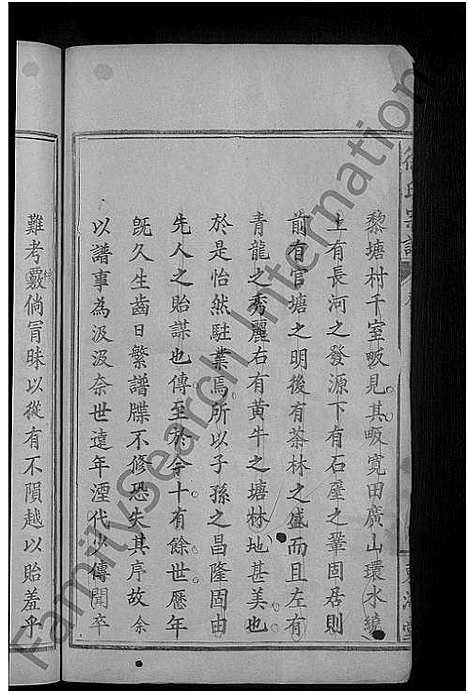 徐氏宗譜
黎塘村千室畈見其畈寬田廣山環水繞
上有長河之發源下有石壁之鞏固居則
前有官塘之明後有茶林之盛而且左有
青龍之秀麗右有黃牛之塘林地甚美也
於是怡然駐業焉所以子孫之昌隆固由
先人之貽謀也傳至於今十有餘世歷年
旣久生齒日繁譜牒不修恐失其序故余
以譜事為汲汲奈世遠年湮代少傳聞卒
難考覈倘冐昧以從有不隕越以貽羞乎
東海堂
FamilySearch International